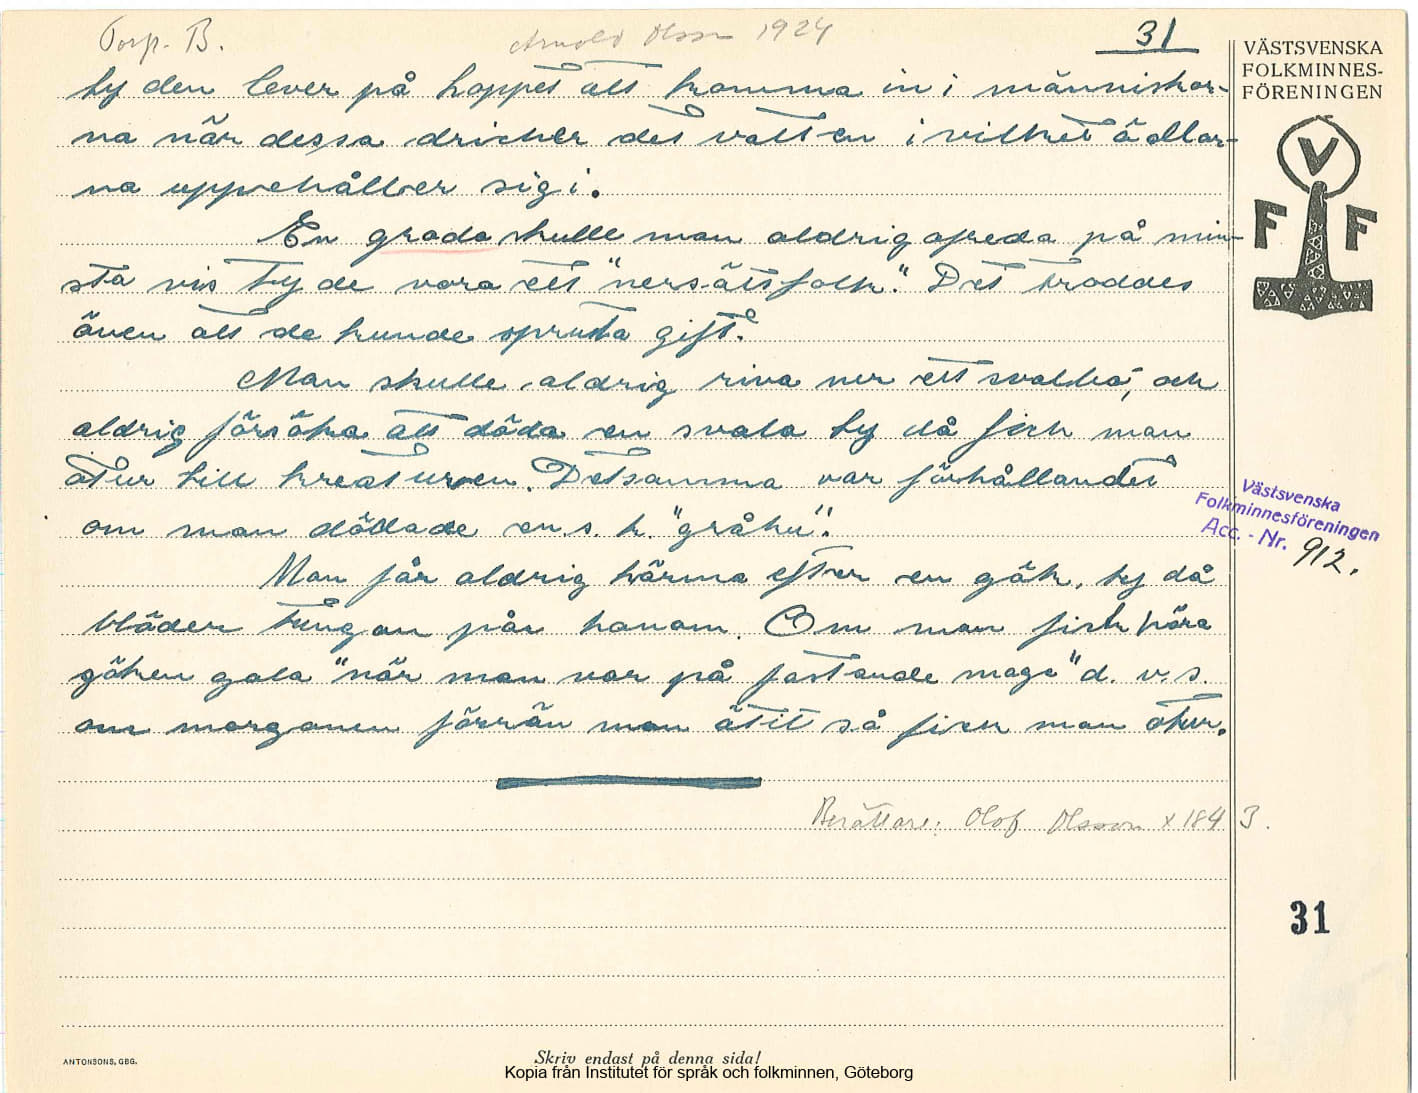 Torp. B.
Arnold Olsson 1924
31
VÄSTSVENSKA
FOLKMINNES-
FÖRENINGEN
ty den lever på hoppet att komma in i människor-
na när dessa dricker det vatten i vilket ödlor-
na uppehåller sig i.
En groda skulle man aldrig ofreda på min-
sta vis ty de vora ett "nersättsfolk". Det troddes
även att de kunde spruta gift.
Man skulle aldrig riva ner ett svalbo, och
aldrig försöka att döda en svala ty då fick man
otur till kreaturen. Detsamma var förhållandet
om man dödade en s. k. "gråhu".
Man får aldrig härma efter en gök, ty då
bläder tungan på honom. Om man fick höra
göken gala "när man var på fastande mage" d. v. s.
om morgonen förrän man ätit så fick man otur.
V
F F
Västsvenska
Folkminnesföreningen
Acc. - Nr. 912.
Berättare: Olof Olsson x 1843.
31
ANTONSONS, GBG.
Skriv endast på denna sida!
Kopia från Institutet för språk och folkminnen, Göteborg